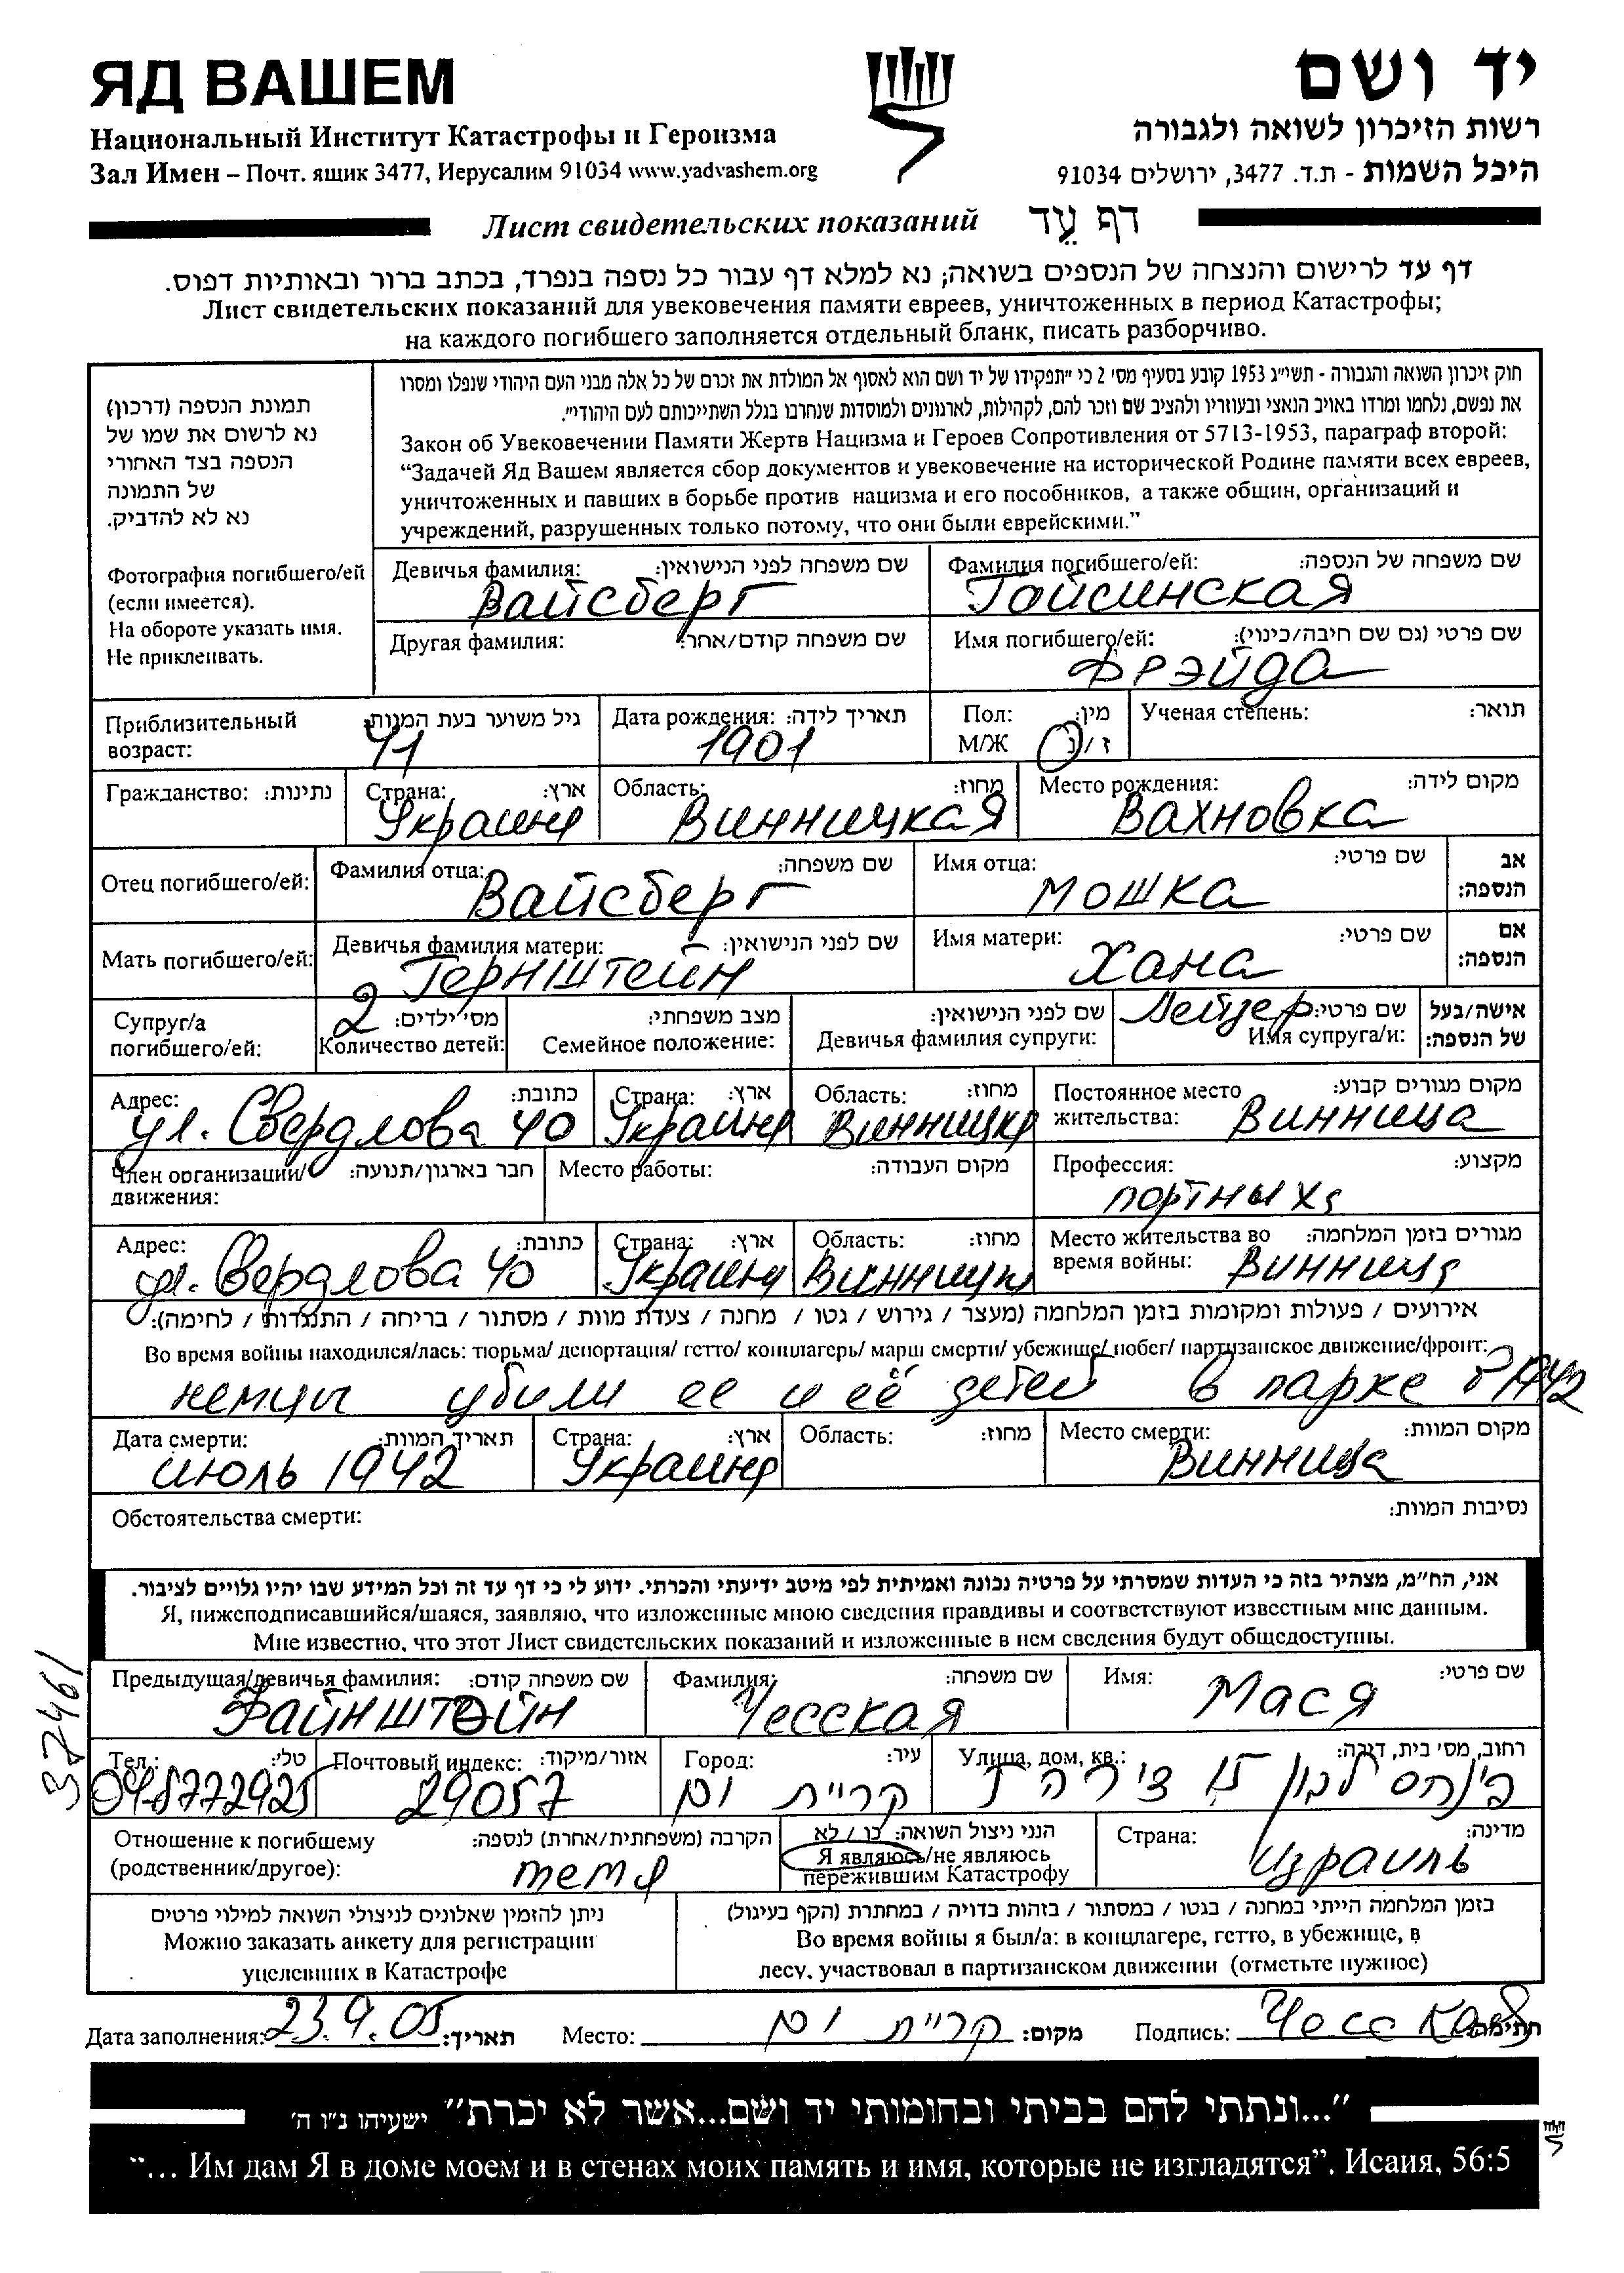 ЯД ВАШЕМ
יד ושם
Национальный Институт Катастрофы и Героизма
רשות הזיכרון לשואה ולגבורה
Зал Имен – Почт. ящик 3477, Иерусалим 91034 www.yadvashem.org
היכל השמות - ת.ד. 3477, ירושלים 91034
Лист свидетельских показаний דף עד
דף עד לרישום והנצחה של הנספים בשואה; נא למלא דף עבור כל נספה בנפרד, בכתב ברור ובאותיות דפוס.
Лист свидетельских показаний для увековечения памяти евреев, уничтоженных в период Катастрофы;
на каждого погибшего заполняется отдельный бланк, писать разборчиво.
תמונת הנספה (דרכון)
נא לרשום את שמו של
הנספה בצד האחורי
של התמונה
נא לא להדביק.
Фотография погибшего/ей
(если имеется).
На обороте указать имя.
Не приклеивать.
חוק זיכרון השואה והגבורה - תשי״ג 1953 קובע בסעיף מס' 2 כי ״תפקידו של יד ושם הוא לאסוף אל המולדת את זכרם של כל אלה מבני העם היהודי שנפלו ומסרו
את נפשם, נלחמו ומרדו באויב הנאצי ובעוזריו ולהציב שם וזכר להם, לקהילות, לארגונים ולמוסדות שנחרבו בגלל השתייכותם לעם היהודי״.
Закон об Увековечении Памяти Жертв Нацизма и Героев Сопротивления от 5713-1953, параграф второй:
“Задачей Яд Вашем является сбор документов и увековечение на исторической Родине памяти всех евреев,
уничтоженных и павших в борьбе против нацизма и его пособников, а также общин, организаций и
учреждений, разрушенных только потому, что они были еврейскими.”
Девичья фамилия: שם משפחה לפני הנישואין:
Вайсберг
Фамилия погибшего/ей: שם משפחה של הנספה:
Гойсинская
Другая фамилия: שם משפחה קודם/אחר:
Имя погибшего/ей: שם פרטי (גם שם חיבה/כינוי):
Фрэйда
Приблизительный возраст: גיל משוער בעת המוות:
41
Дата рождения: תאריך לידה:
1901
Пол: מין:
М/Ж ז / נ
Ученая степень: תואר:
Гражданство: נתינות:
Страна: ארץ:
Украина
Область: מחוז:
Винницкая
Место рождения: מקום לידה:
Вахновка
Отец погибшего/ей:
Фамилия отца: שם משפחה:
Вайсберг
Имя отца: שם פרטי:
Мошка
אב הנספה:
Мать погибшего/ей:
Девичья фамилия матери: שם לפני הנישואין:
Гернштейн
Имя матери: שם פרטי:
Хана
אם הנספה:
Супруг/а погибшего/ей:
2 מס' ילדים:
Количество детей:
מצב משפחתי:
Семейное положение:
שם לפני הנישואין:
Девичья фамилия супруги:
Лейзер שם פרטי:
Имя супруга/и:
אישה/בעל של הנספה:
Адрес: כתובת:
ул. Свердлова 40
Страна: ארץ:
Украина
Область: מחוז:
Винницкя
Постоянное место жительства: מקום מגורים קבוע:
Винница
Член организации/движения: חבר בארגון/תנועה:
Место работы: מקום העבודה:
Профессия: מקצוע:
Адрес: כתובת:
ул. Свердлова 40
Страна: ארץ:
Украина
Область: מחוז:
Место жительства во время войны: מגורים בזמן המלחמה:
Винница
אירועים / פעולות ומקומות בזמן המלחמה (מעצר / גירוש / גטו / מחנה / צעדת מוות / מסתור / בריחה / התנגדות / לחימה):
Во время войны находился/лась: тюрьма/ депортация/ гетто/ концлагерь/ марш смерти/ убежище/ побег/ партизанское движение/фронт:
немцы убили ее и её детей в парке в 1942
Дата смерти: תאריך המוות:
июль 1942
Страна: ארץ:
Украина
Область: מחוז:
Место смерти: מקום המוות:
Винница
Обстоятельства смерти: נסיבות המוות:
אני, הח״מ, מצהיר בזה כי העדות שמסרתי על פרטיה נכונה ואמיתית לפי מיטב ידיעתי והכרתי. ידוע לי כי דף עד זה וכל המידע שבו יהיו גלויים לציבור.
Я, нижеподписавшийся/шаяся, заявляю, что изложенные мною сведения правдивы и соответствуют известным мне данным.
Мне известно, что этот Лист свидетельских показаний и изложенные в нем сведения будут общедоступны.
37461
Предыдущая/девичья фамилия: שם משפחה קודם:
Файнштейн
Фамилия: שם משפחה:
Чесская
Имя: שם פרטי:
Мася
Тел.: טל':
048772925
Почтовый индекс: אזור/מיקוד:
29057
Город: עיר:
קריית ים
Улица, дом, кв.: רחוב, מס' בית, דירה:
פינחס לבון 15
Отношение к погибшему
(родственник/другое): הקרבה (משפחתית/אחרת) לנספה:
тетя
הנני ניצול השואה: כן / לא
Я являюсь/не являюсь
пережившим Катастрофу
Страна: מדינה:
Израиль
ניתן להזמין שאלונים לניצולי השואה למילוי פרטים
Можно заказать анкету для регистрации
уцелевших в Катастрофе
בזמן המלחמה הייתי במחנה / בגטו / במסתור / בזהות בדויה / במחתרת (הקף בעיגול)
Во время войны я был/а: в концлагере, гетто, в убежище, в
лесу, участвовал в партизанском движении (отметьте нужное)
Дата заполнения: 23.9.05 תאריך: Место: קריית ים מקום: Подпись: Чесская חתימה:
״...ונתתי להם בביתי ובחומותי יד ושם...אשר לא יכרת״ ישעיהו נ״ו ה'
“... Им дам Я в доме моем и в стенах моих память и имя, которые не изгладятся”. Исаия, 56:5